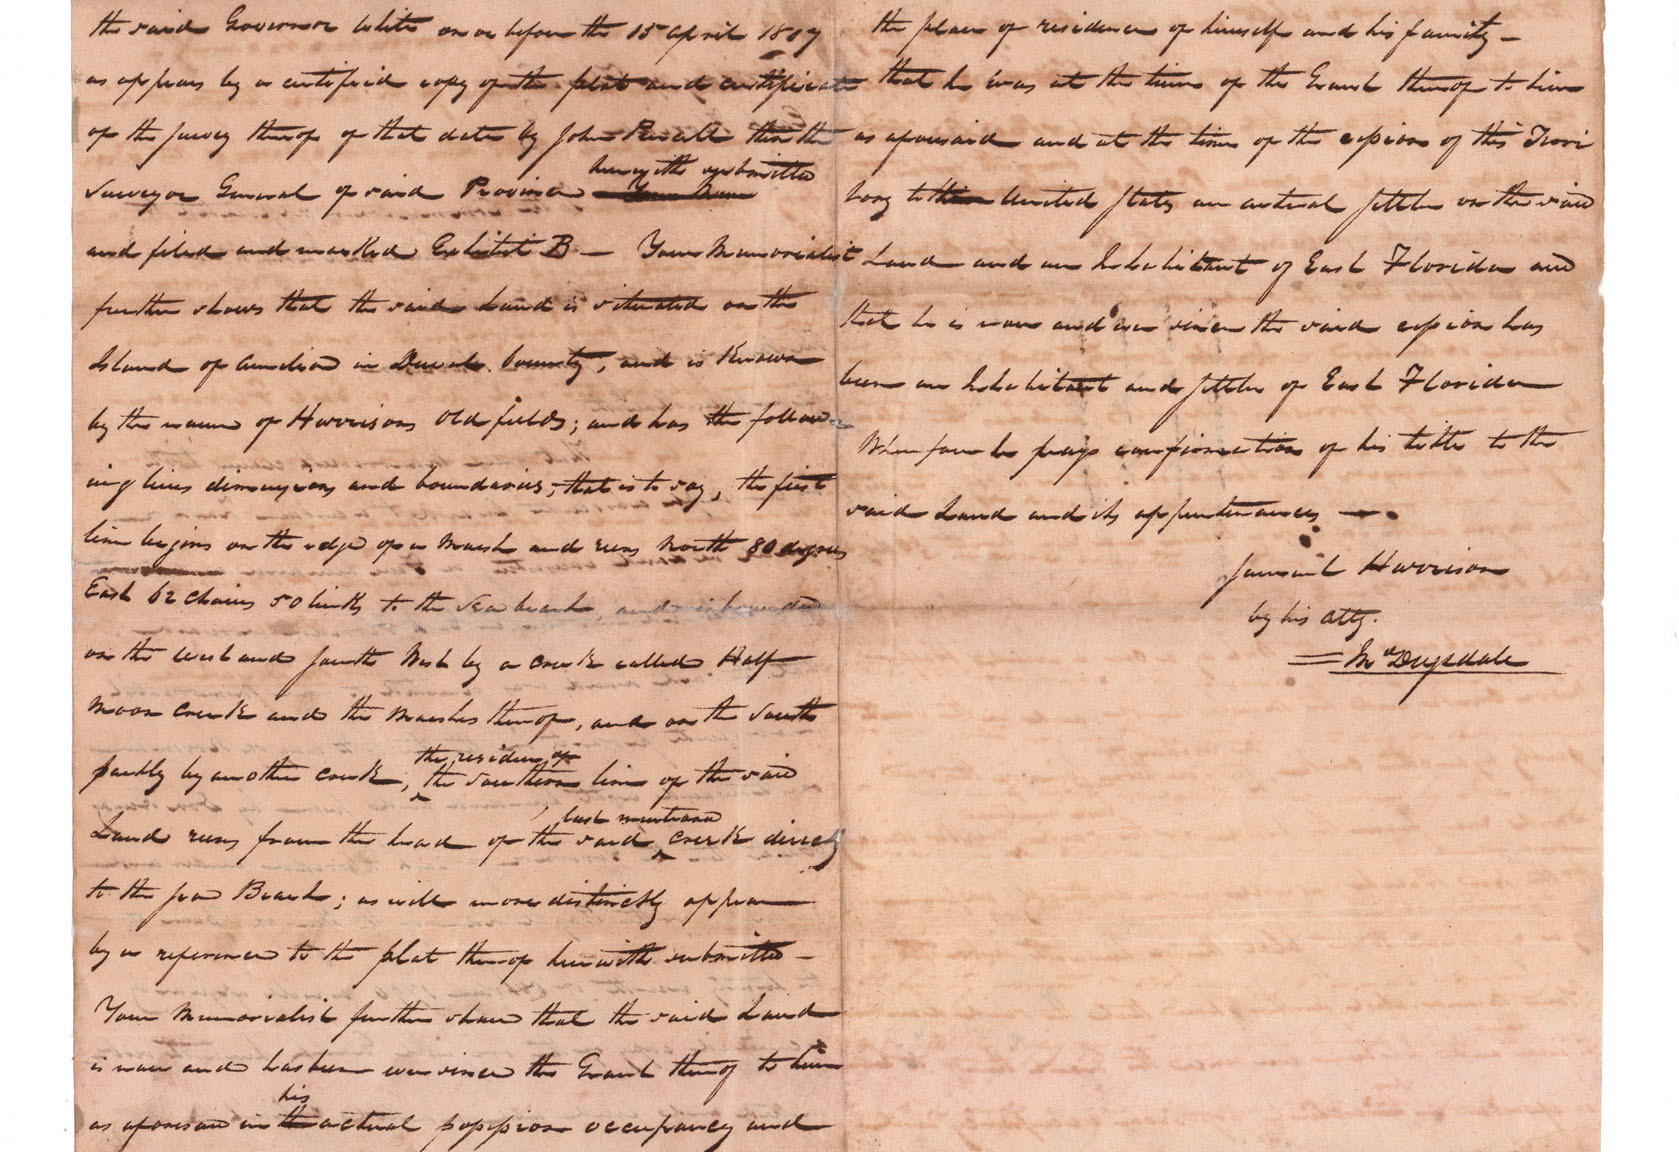 the said Governor White on or before the 15 April 1807
as appears by a certified copy of the plat and certificate
of the Survey thereof of that date by John Purcell then the
herewith submitted
Surveyor General of said Province
and filed and marked Exhibit B — Your Memorialist
further shews that the said Land is situated on the
Island of Amelia in Duval County, and is Known
by the name of Harrisons Old fields; and has the follow-
ing lines dimensions and boundaries, that is to say, the first
line begins on the edge of a Marsh and runs North 80 degrees
East 62 Chains 50 links to the Sea beach, and is bounded
on the West and South West by a Creek called Half
Moon Creek and the Marshes thereof, and on the South
the residue of
partly by another Creek, the Southern line of the said
last mentioned
Land runs from the head of the said Creek directly
to the Sea Beach; as will more distinctly appear
by a reference to the plat thereof herewith submitted —
Your Memorialist further shews that the said Land
is now and has been ever since the Grant thereof to him
his
as aforesaid in the actual possession occupancy and
the place of residence of himself and his family —
that he was at the time of the Grant thereof to him
as aforesaid and at the time of the cession of this Terri
tory to the United States an actual settler on the said
Land and an Inhabitant of East Florida and
that he is now and ever since the said cession has
been an Inhabitant and settler of East Florida
Wherefore he prays confirmation of his title to the
said Land and its appurtenances —
Samuel Harrison
by his Atty.
Drysdale